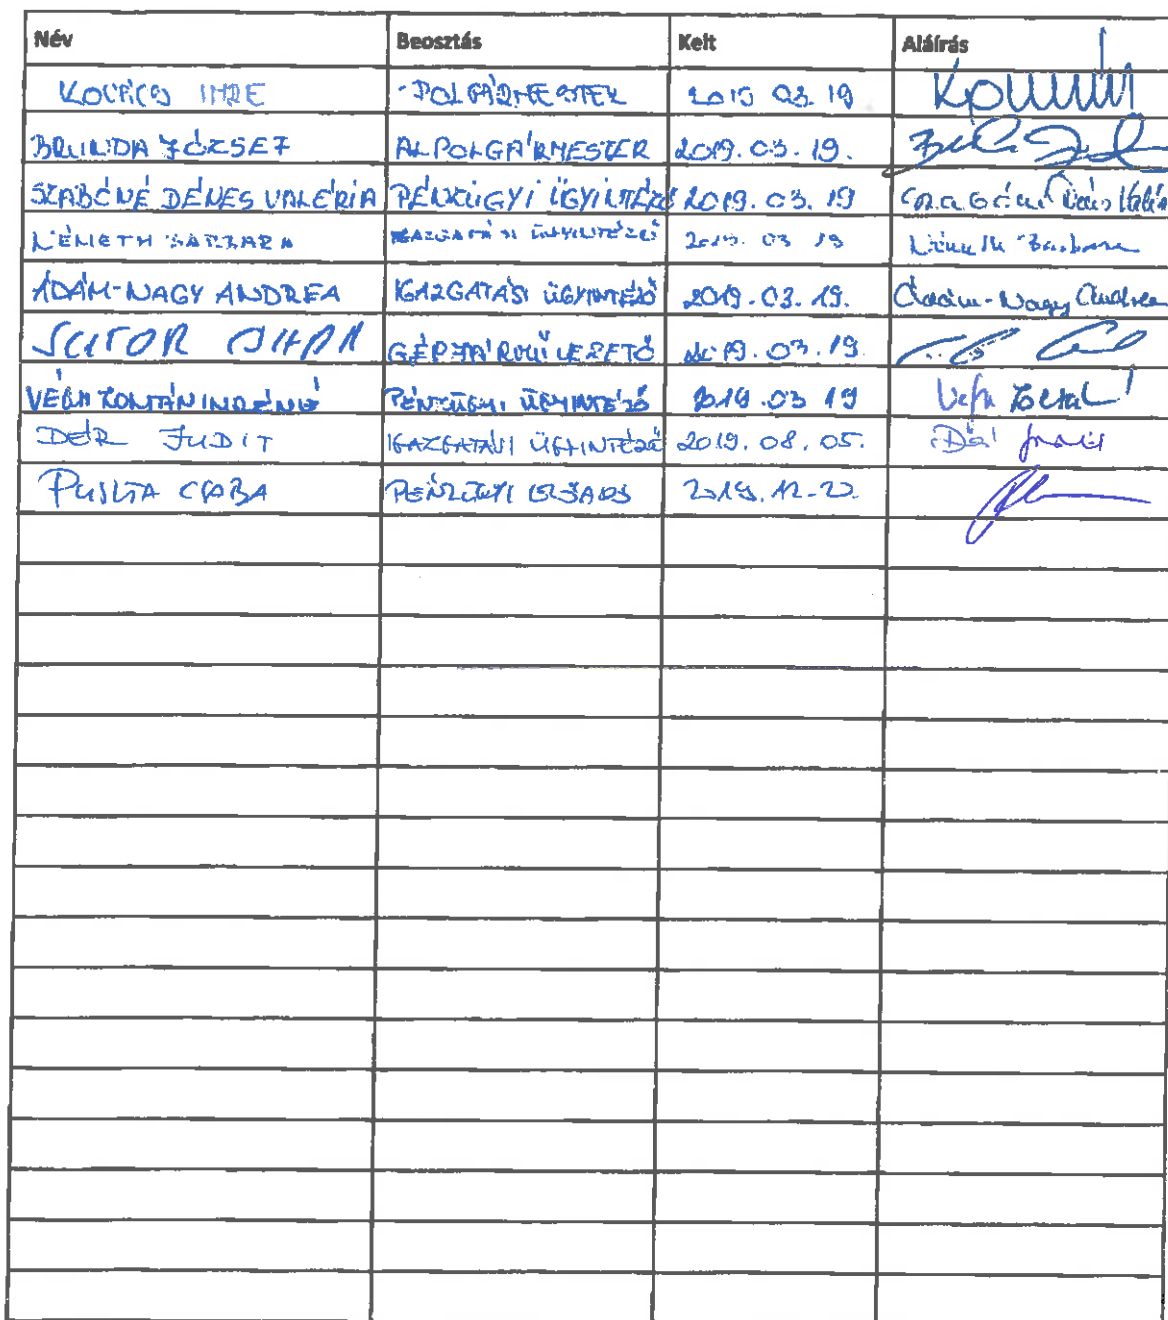 Név Beosztás Kelt Aláírás
KOVÁCS IMRE POLGÁRMESTER 2019 03. 19
BRUNDA JÓZSEF ALPOLGÁRMESTER 2019. 03. 19.
SZABÓNÉ DÉNES VALÉRIA PÉNZÜGYI ÜGYINTÉZŐ 2019. 03. 19
NÉMETH BARBARA IGAZGATÁSI ÜGYINTÉZŐ 2019. 03 19 Németh Barbara
ÁDÁM-NAGY ANDREA IGAZGATÁSI ÜGYINTÉZŐ 2019. 03. 19. Ádám-Nagy Andrea
SUTOR GÉPJÁRMŰVEZETŐ 2019. 03. 19.
VÉGH ZOLTÁN PÉNZÜGYI ÜGYINTÉZŐ 2019. 03 19
DÉR JUDIT IGAZGATÁSI ÜGYINTÉZŐ 2019. 08. 05. Dér Judit
PUSZTA CSABA PÉNZÜGYI ELŐADÓ